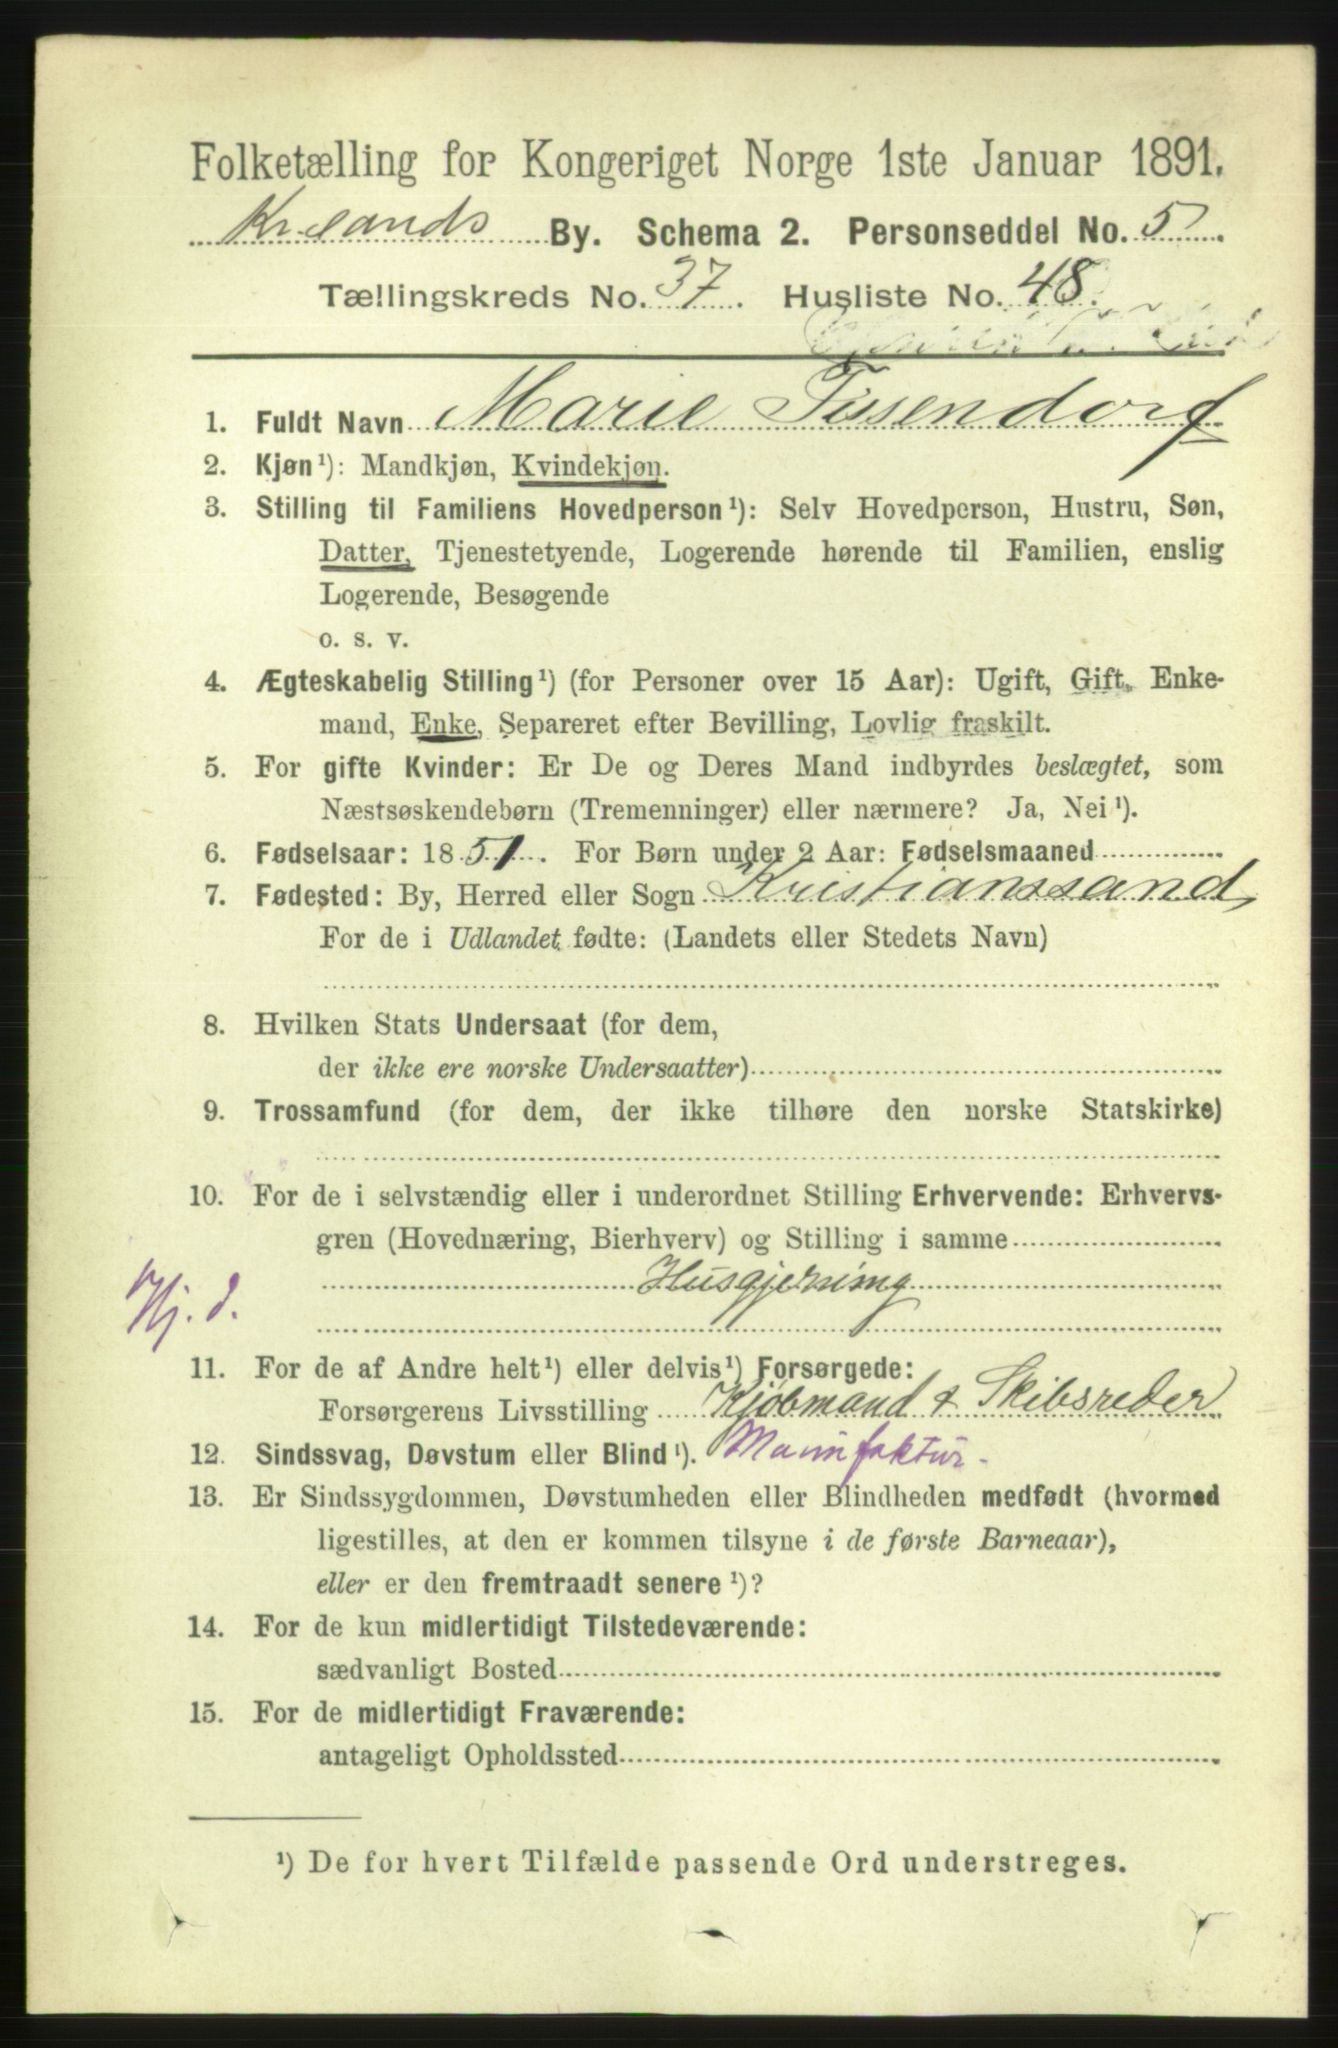 Folketælling for Kongeriget Norge 1ste Januar 1891.
Kr.sands By. Schema 2. Personseddel No. 5.
Tællingskreds No. 37. Husliste No. 48.
1. Fuldt Navn Marie Tissendorf
2. Kjøn¹): Mandkjøn, Kvindekjøn.
3. Stilling til Familiens Hovedperson¹): Selv Hovedperson, Hustru, Søn,
Datter, Tjenestetyende, Logerende hørende til Familien, enslig
Logerende, Besøgende
o. s. v.
4. Ægteskabelig Stilling¹) (for Personer over 15 Aar): Ugift, Gift, Enke-
mand, Enke, Separeret efter Bevilling, Lovlig fraskilt.
5. For gifte Kvinder: Er De og Deres Mand indbyrdes beslægtet, som
Næstsøskendebørn (Tremenninger) eller nærmere? Ja, Nei¹).
6. Fødselsaar: 1851. For Børn under 2 Aar: Fødselsmaaned
7. Fødested: By, Herred eller Sogn Kristianssand
For de i Udlandet fødte: (Landets eller Stedets Navn)
8. Hvilken Stats Undersaat (for dem,
der ikke ere norske Undersaatter)
9. Trossamfund (for dem, der ikke tilhøre den norske Statskirke)
10. For de i selvstændig eller i underordnet Stilling Erhvervende: Erhvervs-
gren (Hovednæring, Bierhverv) og Stilling i samme
Husgjerning
Hj. d.
11. For de af Andre helt¹) eller delvis¹) Forsørgede:
Forsørgerens Livsstilling Kjøbmand & Skibsreder
12. Sindssvag, Døvstum eller Blind¹). Manufaktur-
13. Er Sindssygdommen, Døvstumheden eller Blindheden medfødt (hvormed
ligestilles, at den er kommen tilsyne i de første Barneaar),
eller er den fremtraadt senere¹)?
14. For de kun midlertidigt Tilstedeværende:
sædvanligt Bosted
15. For de midlertidigt Fraværende:
antageligt Opholdssted
¹) De for hvert Tilfælde passende Ord understreges.